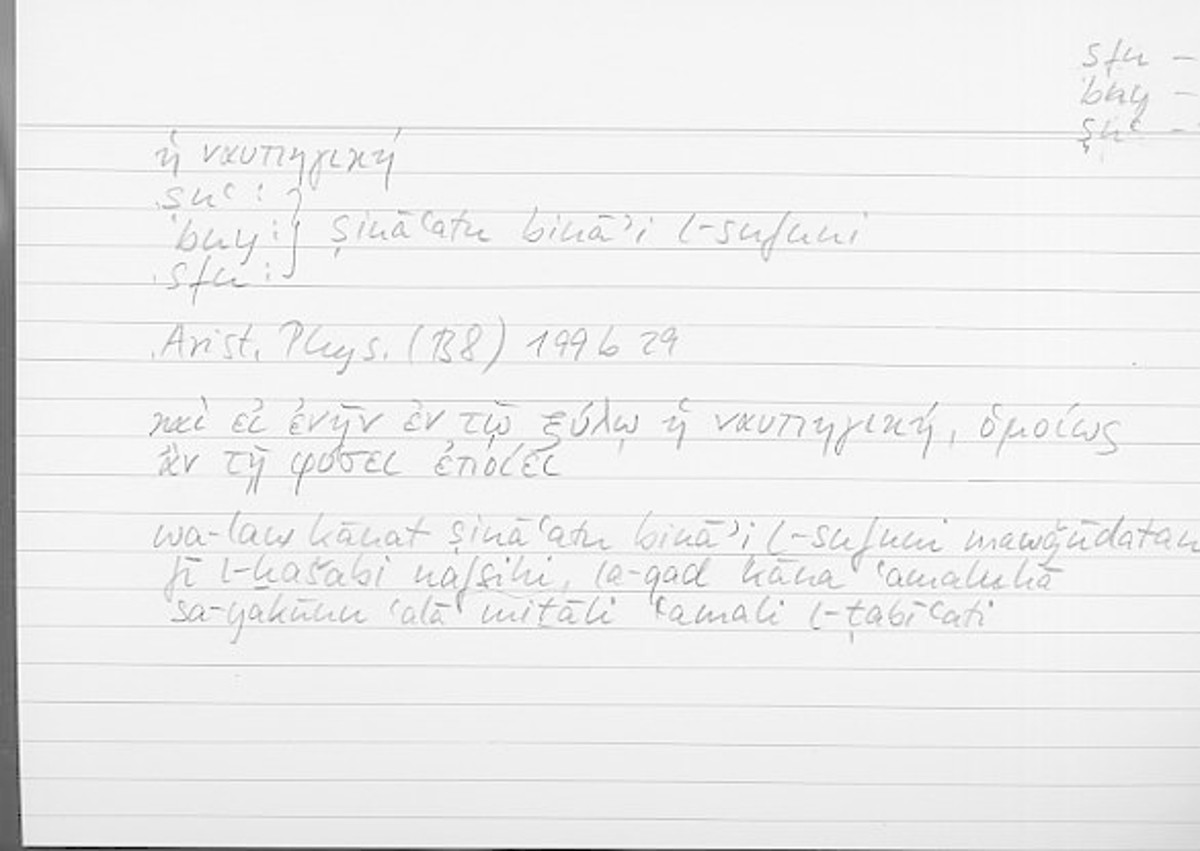 sfn –
bny –
ṣnʿ –
ἡ ναυπηγική
ṣnʿ :
bny : } ṣināʿatu bināʾi l-sufuni
sfn :
Arist. Phys. (B8) 199 b 29
καὶ εἰ ἐνῆν ἐν τῷ ξύλῳ ἡ ναυπηγική, ὁμοίως
ἂν τῇ φύσει ἐποίει
wa-law kānat ṣināʿatu bināʾi l-sufuni mawǧūdatan
fī l-ḫašabi nafsihi, la-qad kāna ʿamaluhā
sa-yakūnu ʿalā miṯāli ʿamali l-ṭabīʿati